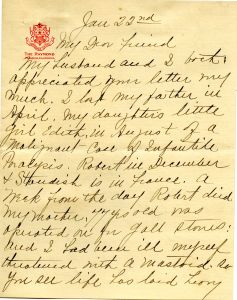 THE RAYMOND
Jan 22nd
My Dear Friend
My husband and I both
appreciated your letter very
much. I lost my father in
April. My daughter's little
girl Edith, in August of a
Malignant Case of Infantile
Paralysis. Robert in December
& Standish is in France. A
Week from the day Robert died
my mother, 77 yrs old was
operated on for gall stones:
And I had been ill myself
threatened with a Mastoid. So
you see life has laid heavy